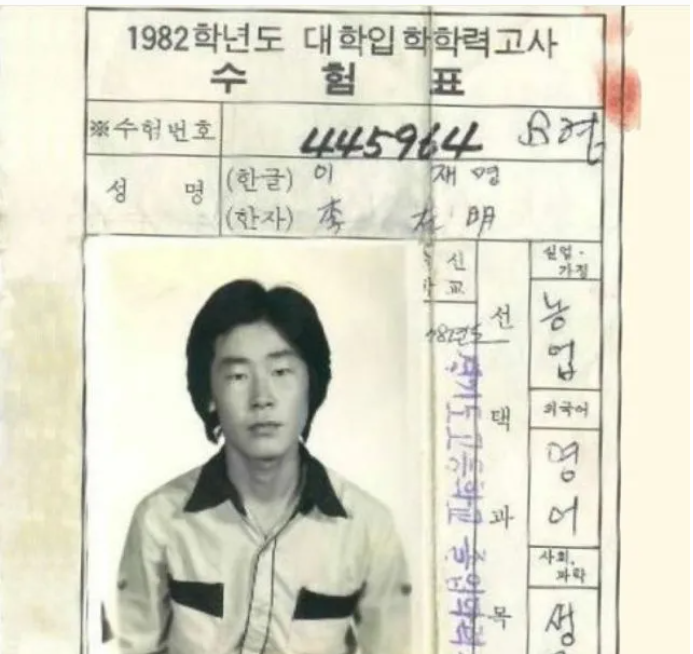 1982학년도 대학입학학력고사
수 험 표
※수험번호 445964 B형
성 명 (한글) 이 재 명
(한자) 李 在 明
출신
학교
82년도
선 택 과 목
실업·
가정
농업
외국어
영어
사회,
과학